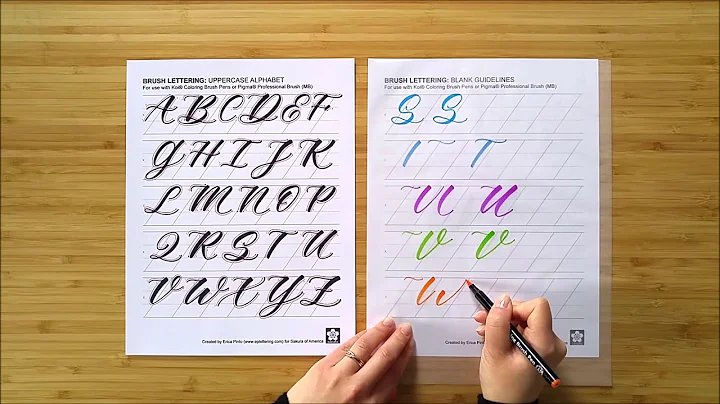 BRUSH LETTERING: UPPERCASE ALPHABET
For use with Koi® Coloring Brush Pens or Pigma® Professional Brush (MB)
A B C D E F
G H I J K
L M N O P
Q R S T U
V W X Y Z
Created by Erica Pinto (www.eplettering.com) for Sakura of America
BRUSH LETTERING: BLANK GUIDELINES
For use with Koi® Coloring Brush Pens or Pigma® Professional Brush (MB)
S S
T
U U
V V
W
Created by Erica
Brush Pen